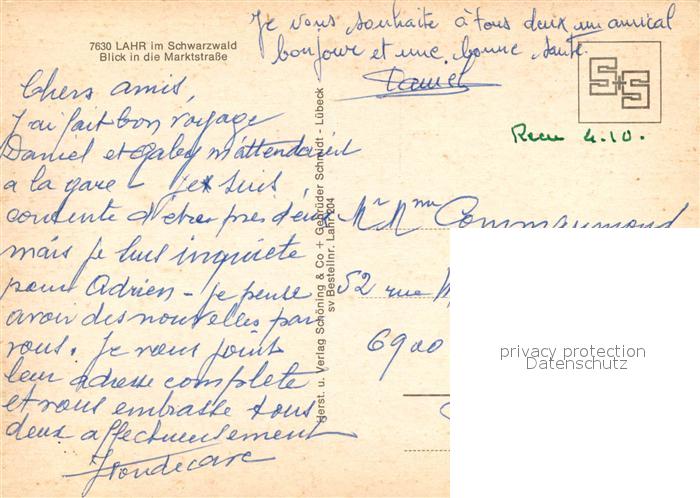 7630 LAHR im Schwarzwald
Blick in die Marktstraße
Je vous souhaite à tous deux un amical
bonjour et une bonne santé.
Daniel
S+S
Recu 4.10.
Chers amis,
J'ai fait bon voyage
Daniel et Gaby m'attendaient
a la gare - je suis
contente d'être près d'eux
mais je suis inquiete
pour Adrien - je pense
avoir des nouvelles par
vous. Je vous joint
leur adresse complete
et vous embrasse tous
deux affectueusement
Herst. u. Verlag Schöning & Co + Gebrüder Schmidt - Lübeck
sv Bestellnr. Lahr 204
Mr Mme
52 rue
6900
privacy protection
Datenschutz